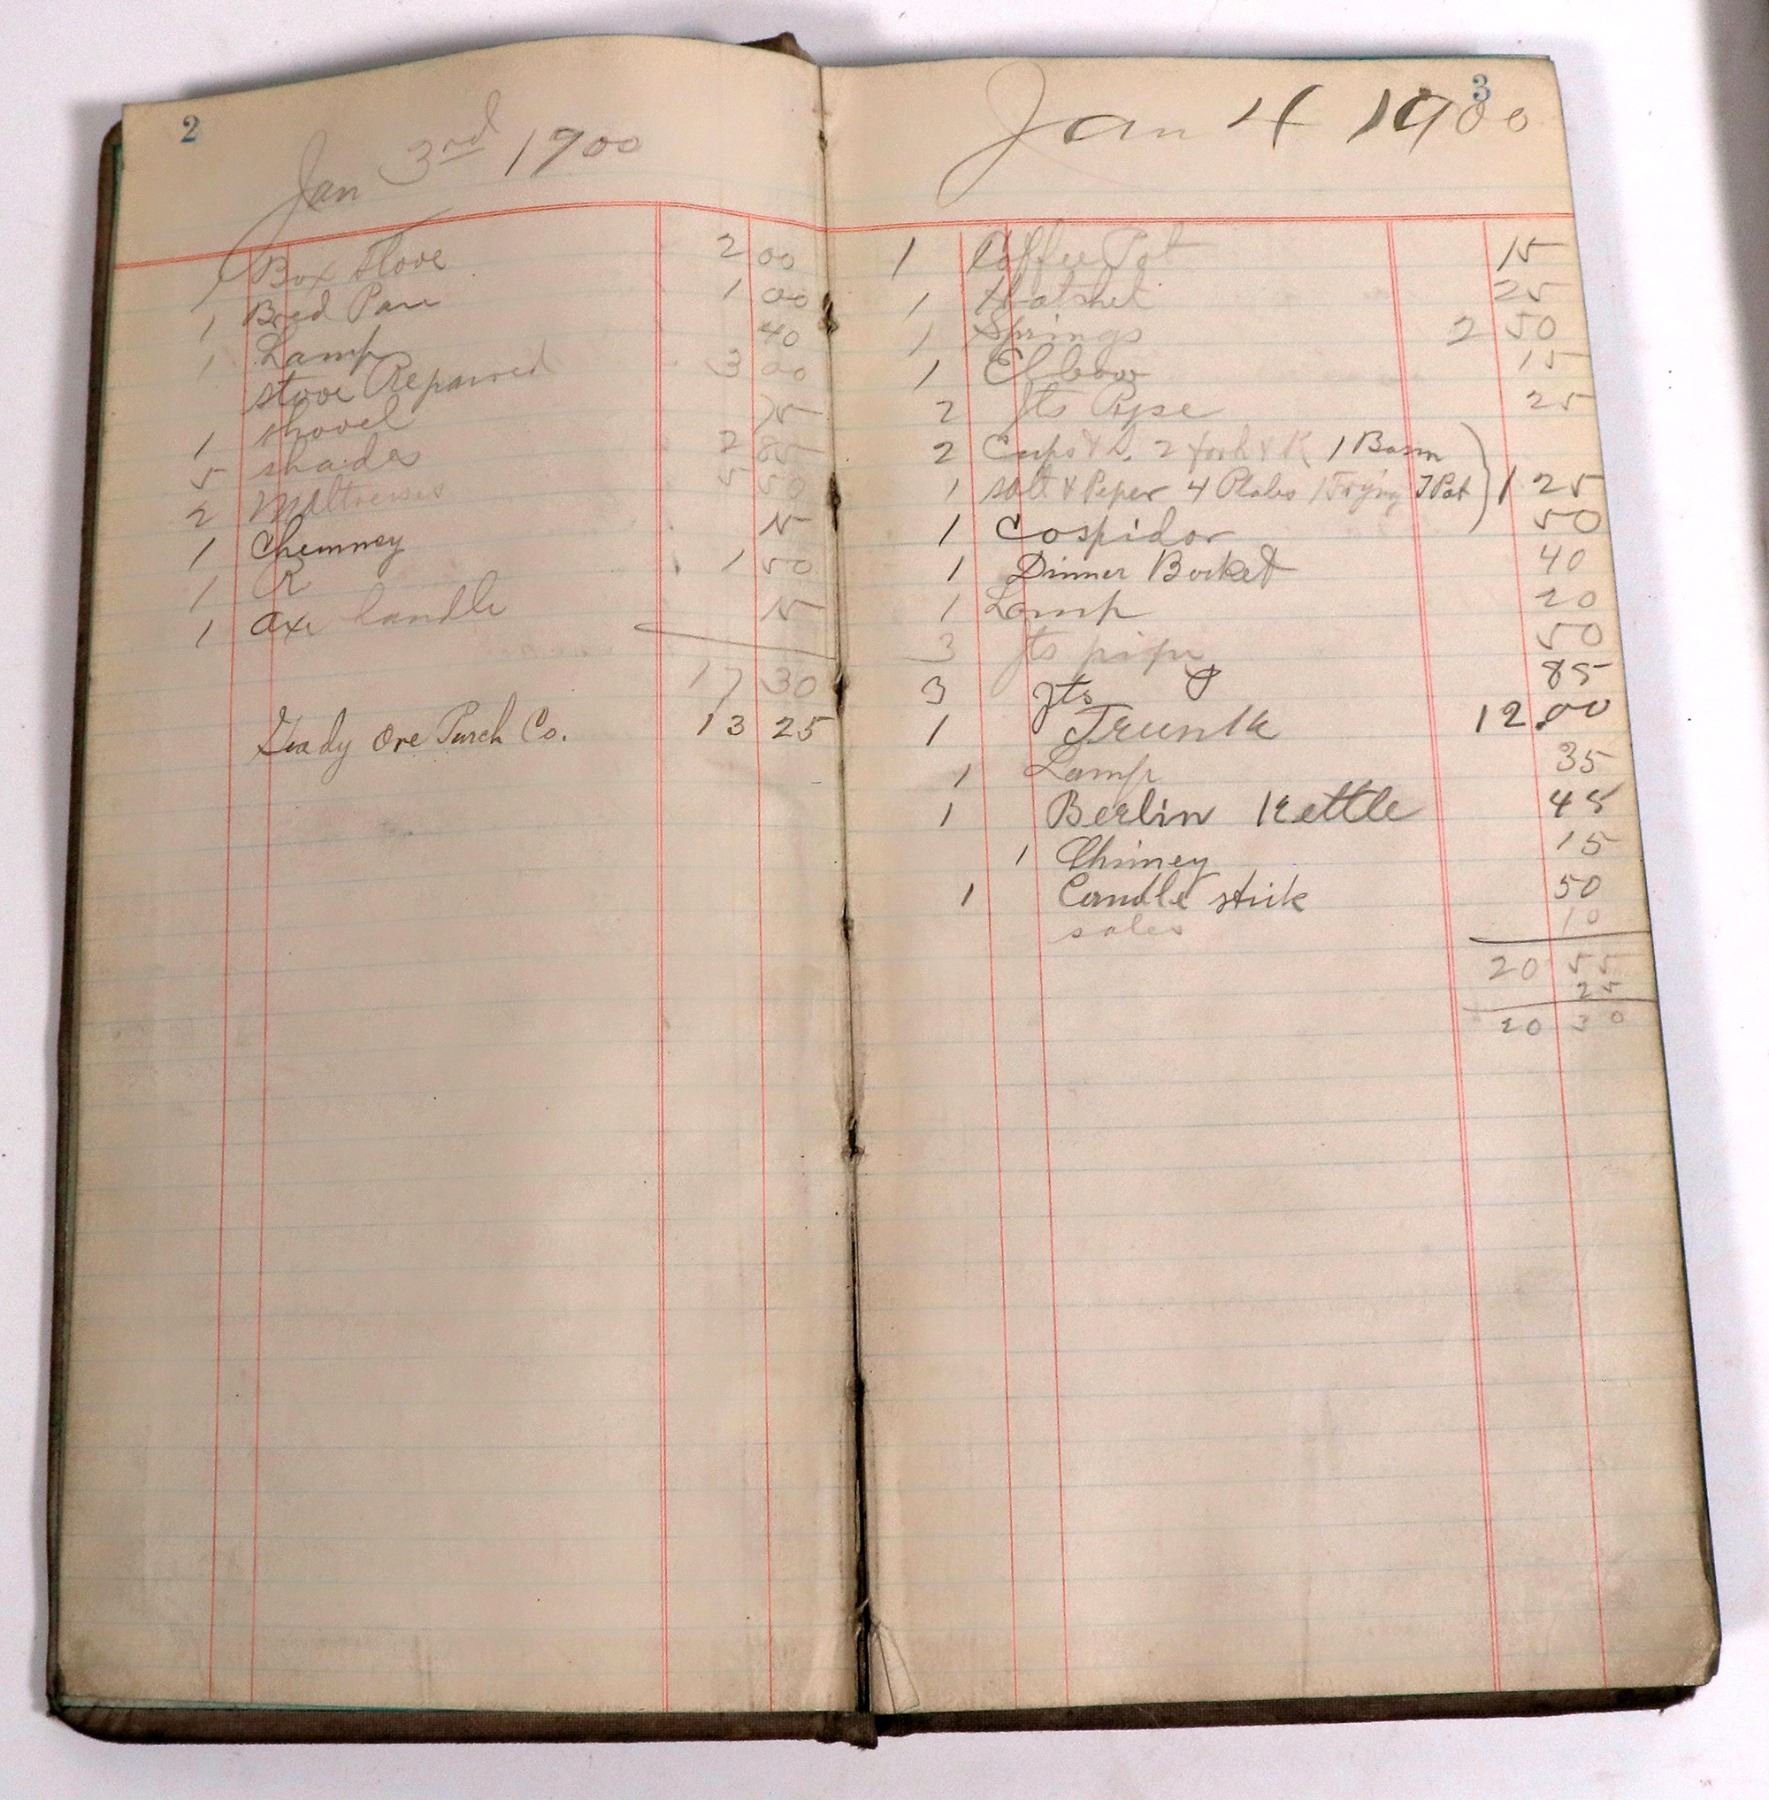 2
Jan 3rd 1900
1 Box Stove 2 00
1 Bred Pan 1 00
1 Lamp 40
stove Repaired 3 00
1 shovel 75
5 shades 2 85
2 Mattresses 5 50
1 Chemney 15
1 R 1 50
1 axe handle 15
17 30
Ore Purch Co. 13 25
3
Jan 4 1900
1 Coffee Pot 15
1 Hatchet 25
1 Springs 2 50
1 Elbow 15
2 Jts Pipe 25
2 Cups & S. 2 fork & K 1 Basin
1 salt & Peper 4 Plates 1 Frying 1 Pot 1 25
1 Cospidor 50
1 Dinner Bocket 40
1 Lamp 20
3 Jts pipe 50
3 Jts 85
1 Trunk 12.00
1 Lamp 35
1 Berlin Kettle 45
1 Chimey 15
1 Candle stick 50
sales 10
20 55
25
20 30